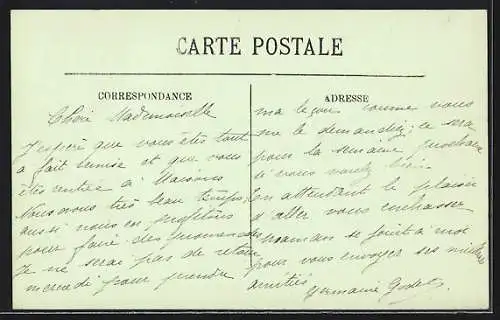 CARTE POSTALE
CORRESPONDANCE
ADRESSE
Chère Mademoiselle
J'espère que vous êtes tout
à fait remise et que vous
êtes rentrée à Maisons
Nous avons très beau temps
aussi nous en profitons
pour faire des promenades
Je ne serai pas de retour
mercredi pour prendre
ma leçon comme vous
me le demandiez; ce sera
pour la semaine prochaine
si vous voulez bien.
En attendant le plaisir
d'aller vous embrasser
maman se joint à moi
pour vous envoyer ses
amitiés
Germaine